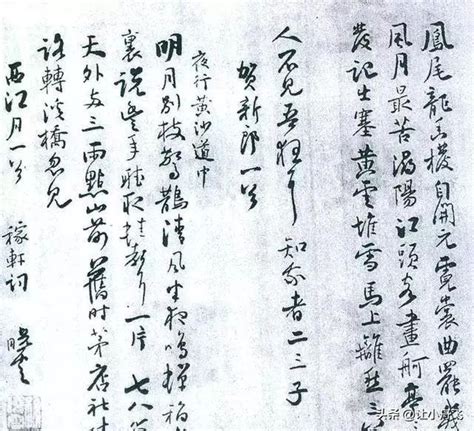 鳳尾龍香撥自開元霓裳曲罷幾
風月最苦潯陽江頭客畫舸亭
發記出塞黃雲堆雪馬上離愁三
人不見吾狂耳知我者二三子
賀新郎一首
夜行黃沙道中
明月別枝驚鵲清風半夜鳴蟬稻
裏說豐年聽取蛙聲一片七八個
天外兩三雨點山前舊時茅店社
路轉溪橋忽見
西江月一首 稼軒詞
头条 @让小